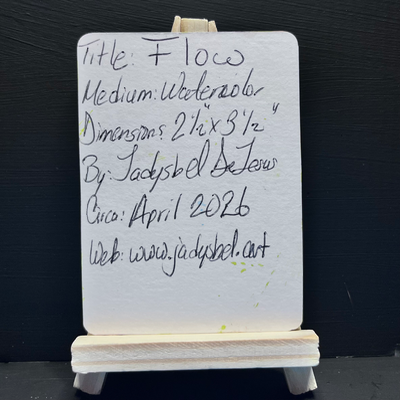 Title: Flow
Medium: Watercolor
Dimensions: 2½" x 3½"
By: Jadysbel DeJesus
Circa: April 2026
Web: www.jadysbel.art